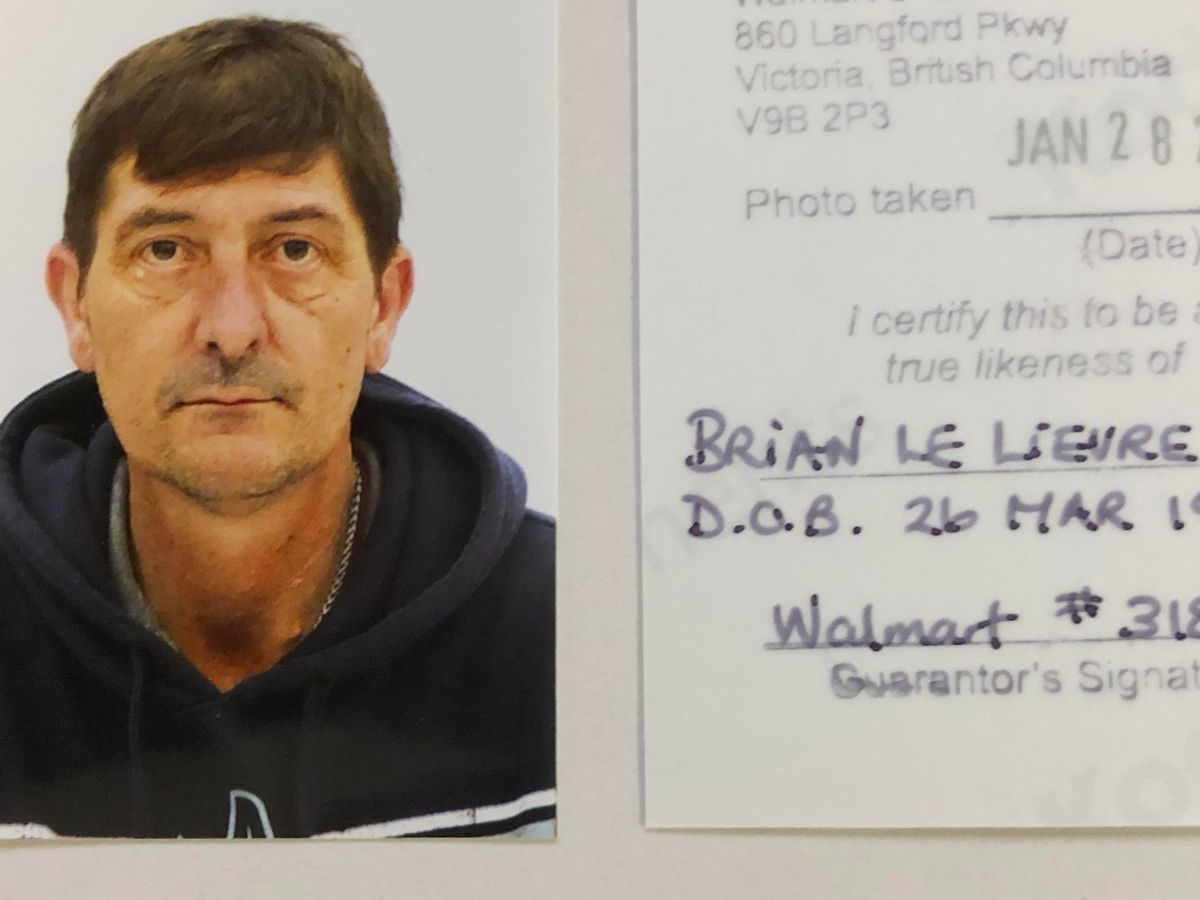 860 Langford Pkwy
Victoria, British Columbia
V9B 2P3
JAN 28
Photo taken
(Date)
I certify this to be a
true likeness of
BRIAN LE LIEVRE
D.O.B. 26 MAR 19
Walmart #318
Guarantor's Signat